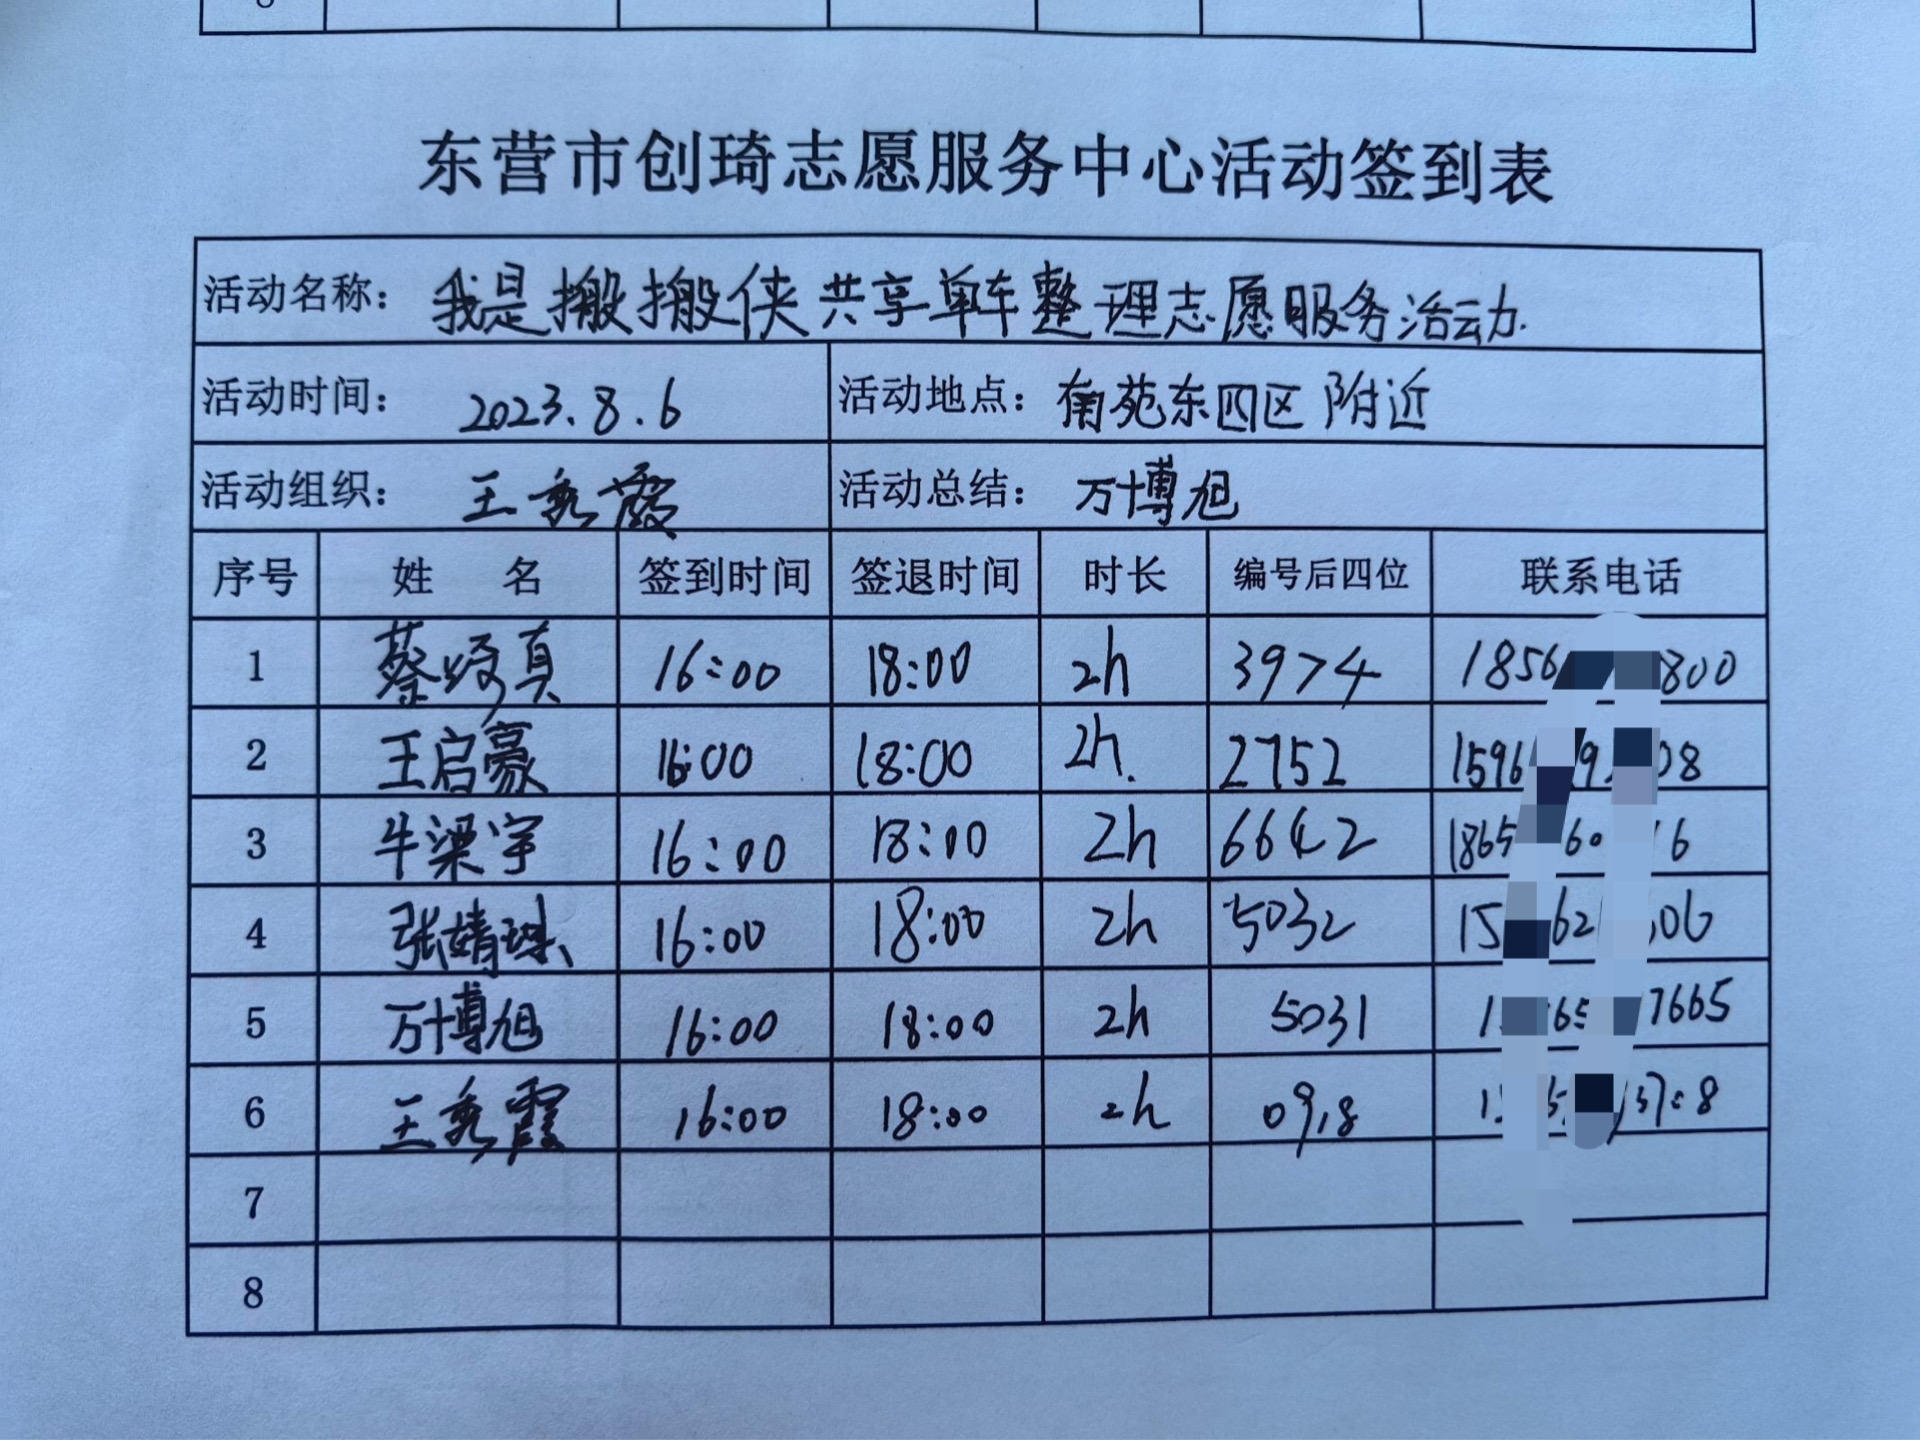 东营市创琦志愿服务中心活动签到表
活动名称： 我是搬搬侠共享单车整理志愿服务活动.
活动时间： 2023.8.6 活动地点： 苑东四区附近
活动组织： 王秀霞 活动总结： 万博旭
序号 姓 名 签到时间 签退时间 时长 编号后四位 联系电话
1 蔡 真 16:00 18:00 2h 3974 1856 800
2 王启豪 16:00 18:00 2h. 2752 1596 9 08
3 牛梁宇 16:00 18:00 2h 6642 1865 60 6
4 张婧琪 16:00 18:00 2h 5032 15 62 06
5 万博旭 16:00 18:00 2h 5031 1 65 7665
6 王秀霞 16:00 18:00 2h 0918 1 8
7
8